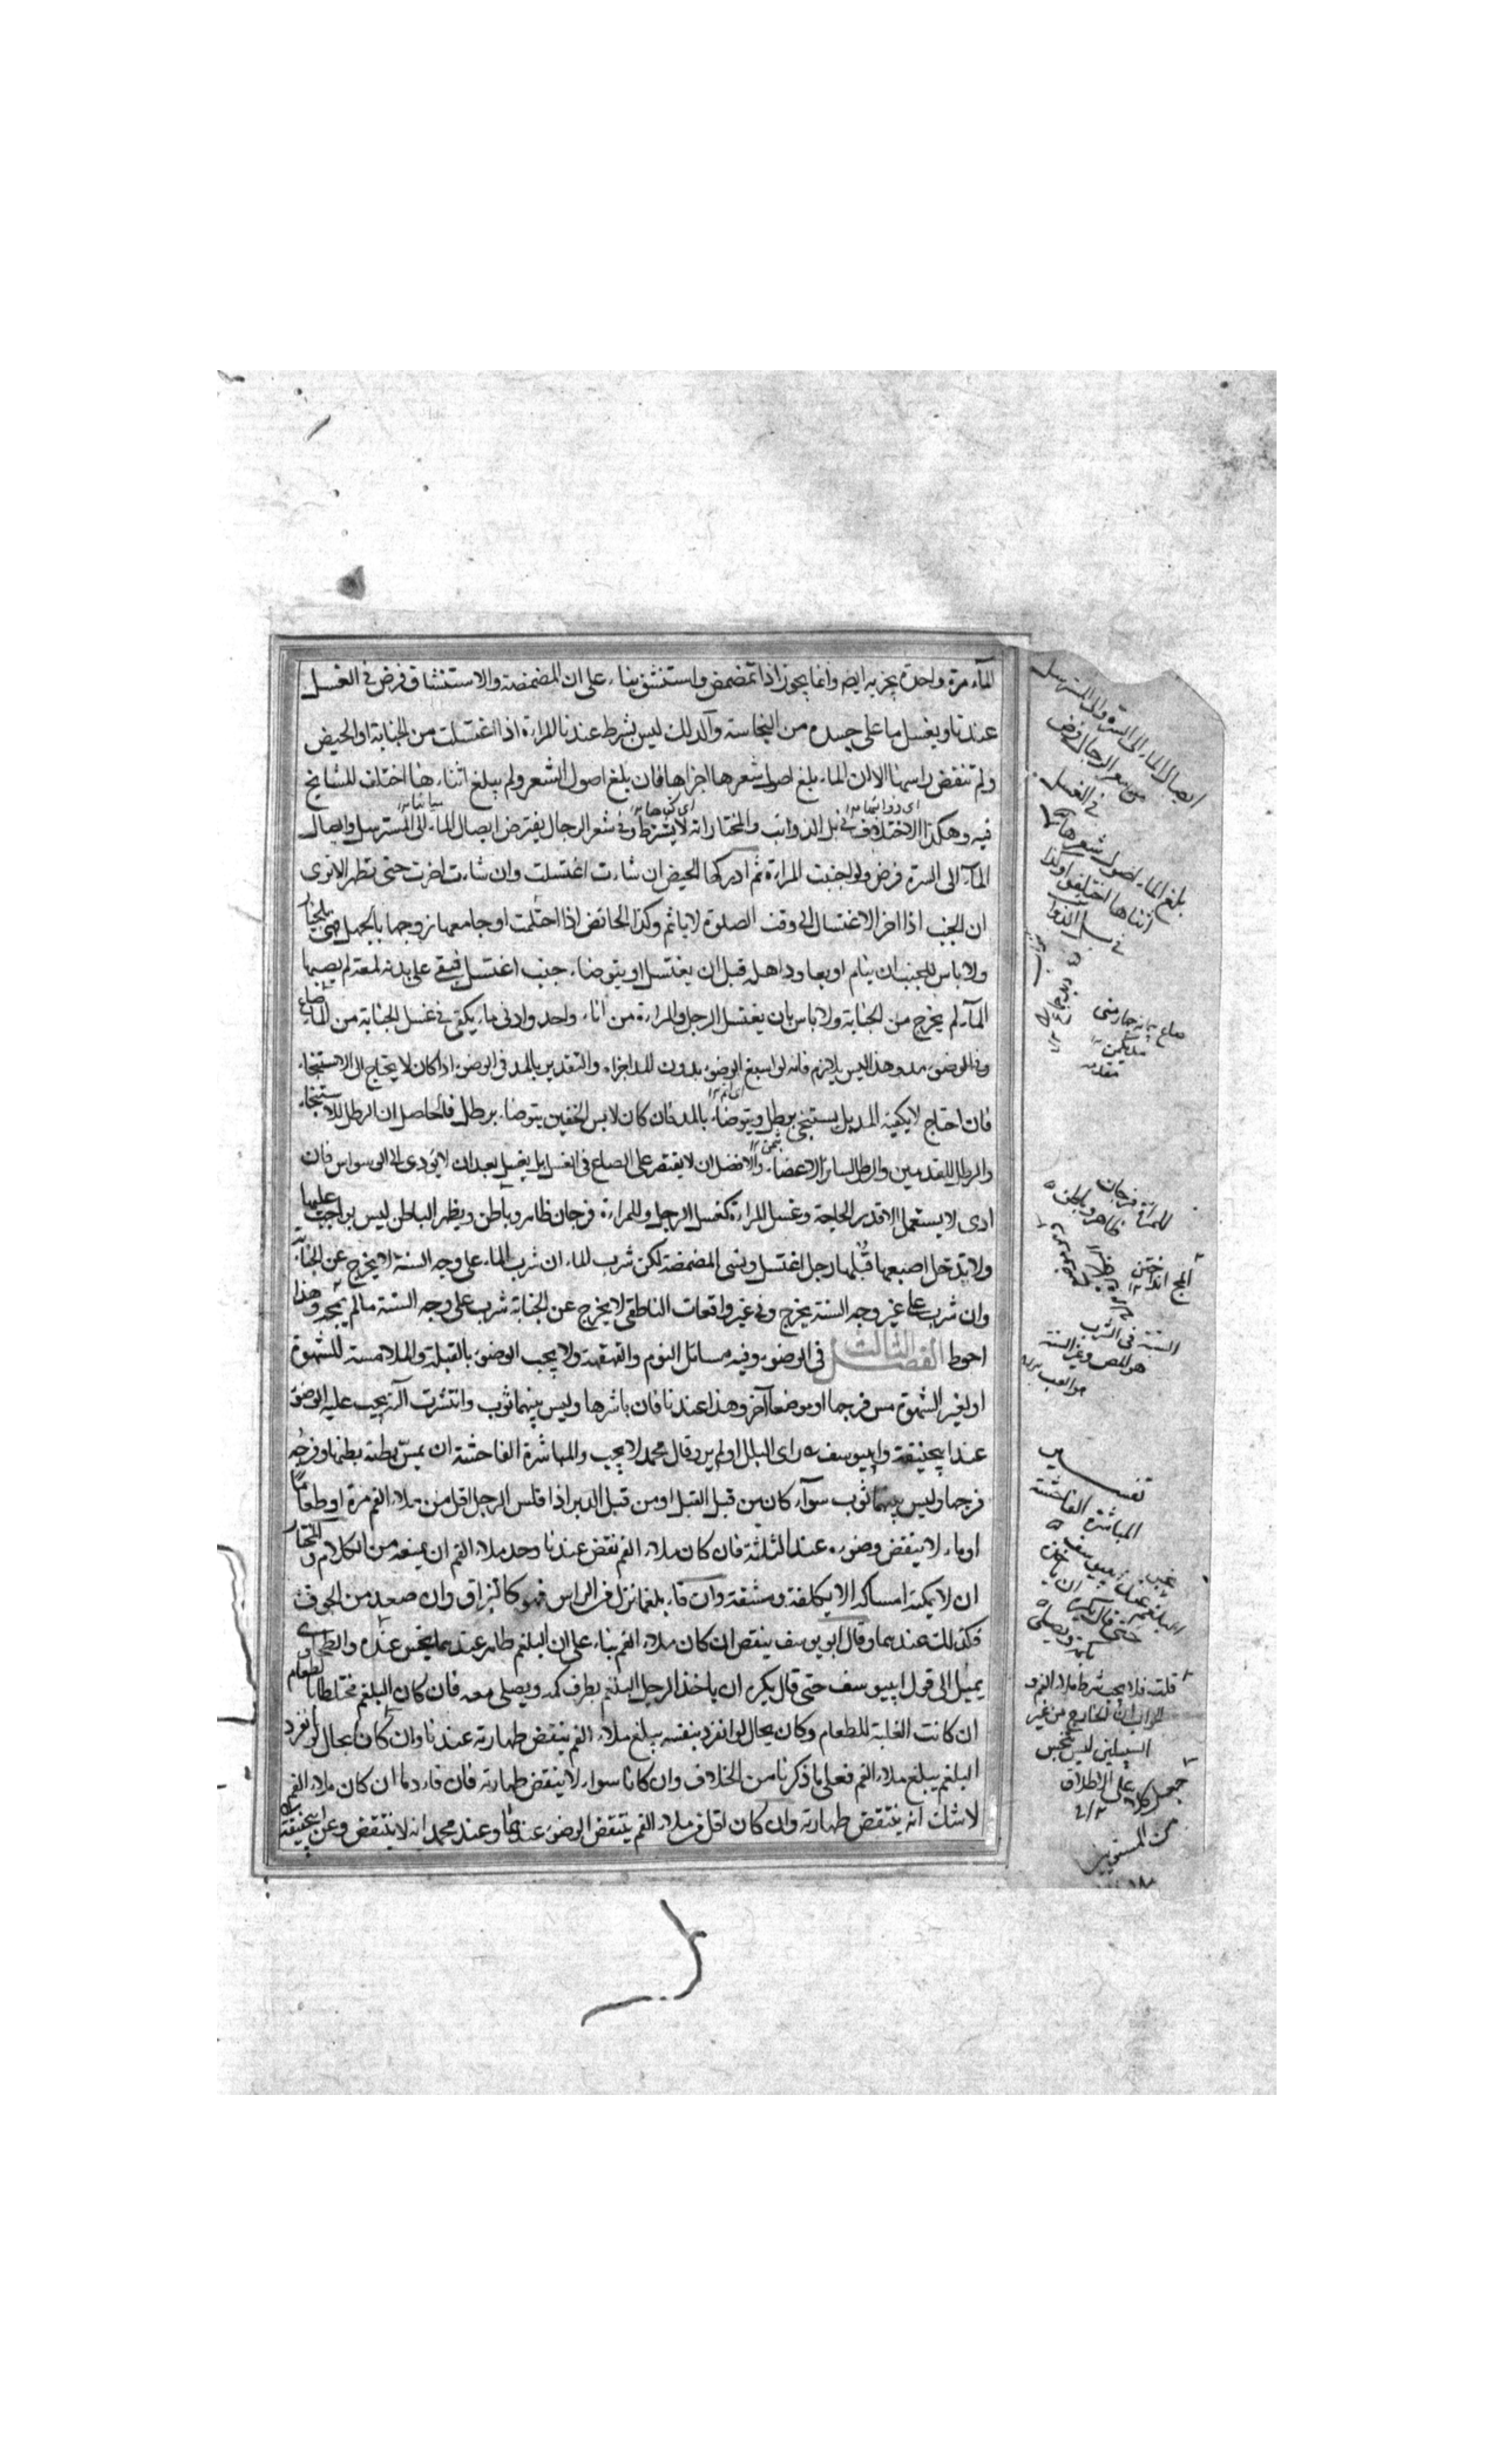 المآء مرة واحدة يجزيه ايضا وانما يجوز اذا تمضمض واستنشق بناء على ان المضمضة والاستنشاق فرض في الغسل
عندنا ويغسل ما على جسده من النجاسة والدلك ليس بشرط عندنا المراءة اذا اغتسلت من الجنابة او الحيض
ولم تنقض راسها الا ان الماء بلغ اصول شعرها اجزاها فان بلغ اصول الشعر ولم يبلغ اثناءها اختلف المشايخ
فيه وهكذا الاختلاف في بل الذوائب والمختار انه لا يشترط وفي شعر الرجال يفترض ايصال الماء الى المسترسل وايصال
المآء الى السرة فرض ولو اجنبت المراءة ثم ادركها الحيض ان شاءت اغتسلت وان شاءت اخرت حتى تطهر الا ترى
ان الجنب اذا اخر الاغتسال الى وقت الصلوة لا ياثم وكذا الحائض اذا احتلمت او جامعها زوجها بالجهل فهي بالخيار
ولا باس للجنب ان ينام او يعاود اهله قبل ان يغتسل او يتوضاء جنب اغتسل فبقي على بدنه لمعة لم يصبها
المآء لم يخرج من الجنابة ولا باس بان يغتسل الرجل والمراءة من اناء واحد وادنى ماء يكفي في غسل الجنابة من الماء صاع
وفي الوضوء مد وهذا ليس بلازم فانه لو اسبغ الوضوء بدون المد اجزاه والتقدير بالمد في الوضوء اذا كان لا يحتاج الى الاستنجاء
فان احتاج لا يكفيه المد بل يستنجي برطل ويتوضاء بالمد فان كان لابس الخفين يتوضاء برطل فالحاصل ان الرطل للاستنجاء
والرطل للقدمين والرطل لسائر الاعضاء والافضل ان لا يقتصر على الصاع في الغسل بل يغسل بعد ان لا يؤدي الى الوسواس فان
ادى لا يستعمل الا قدر الحاجة وغسل المراءة كغسل الرجل وللمراءة فرجان ظاهر وباطن ويظهر الباطن ليس بواجب عليها
ولا تدخل اصبعها قبلها رجل اغتسل ونسي المضمضة لكن شرب الماء ان شرب الماء على وجه السنة لا يخرج عن الجنابة
وان شرب على غير وجه السنة يخرج وفي غير واقعات الناطفي لا يخرج عن الجنابة شرب على وجه السنة ما لم يمجه وهذا
احوط الفصل الثالث في الوضوء وفيه مسائل النوم والقهقهة ولا يجب الوضوء بالقبلة والملامسة للشهوة
او لغير الشهوة مس فرجها او موضعا آخر وهذا عندنا فان باشرها وليس بينهما ثوب وانتشرت آلته يجب عليه الوضوء
عند ابيحنيفة وابييوسف راى البلل او لم ير وقال محمد لا يجب والمباشرة الفاحشة ان يمس بطنه بطنها وفرجه
فرجها وليس بينهما ثوب سوآء كان من قبل القبل او من قبل الدبر اذا قلس الرجل اقل من ملاء الفم مرة او طعاما
او ماء لا ينقض وضوءه عند الثلثة فان كان ملاء الفم نقض عندنا وحد ملاء الفم ان يمنعه من الكلام والمختار
ان لا يمكنه امساكه الا بكلفة ومشقة وان قاء بلغما نزل من الراس فهو كالبزاق وان صعد من الجوف
فكذلك عندهما وقال ابو يوسف ينقض ان كان ملاء الفم بناء على ان البلغم طاهر عندهما نجس عنده والطحاوي
يميل الى قول ابييوسف حتى قال يكره ان ياخذ الرجل البلغم بطرف كمه ويصلي معه فان كان البلغم مختلطا بالطعام
ان كانت الغلبة للطعام وكان بحال لو انفرد بنفسه يبلغ ملاء الفم ينقض طهارته عندنا وان كان بحال لو انفرد
البلغم يبلغ ملاء الفم فعلى ما ذكرنا من الخلاف وان كانا سواء لا ينقض طهارته فان قاء دما ان كان ملاء الفم
لا شك انه ينتقض طهارته وان كان اقل من ملاء الفم ينتقض الوضوء عندهما وعند محمد انه لا ينتقض وعن ابيحنيفة
ايصال الماء الى السرة والى المسترسل
من شعر الرجال فرض
في الغسل
بلغ الماء اصول شعرها
اثناءها اختلفوا
للمراة فرجان
ظاهر وباطن
السنة في الشرب
هو المص وغير السنة
هو العب
تفسير
المباشرة الفاحشة